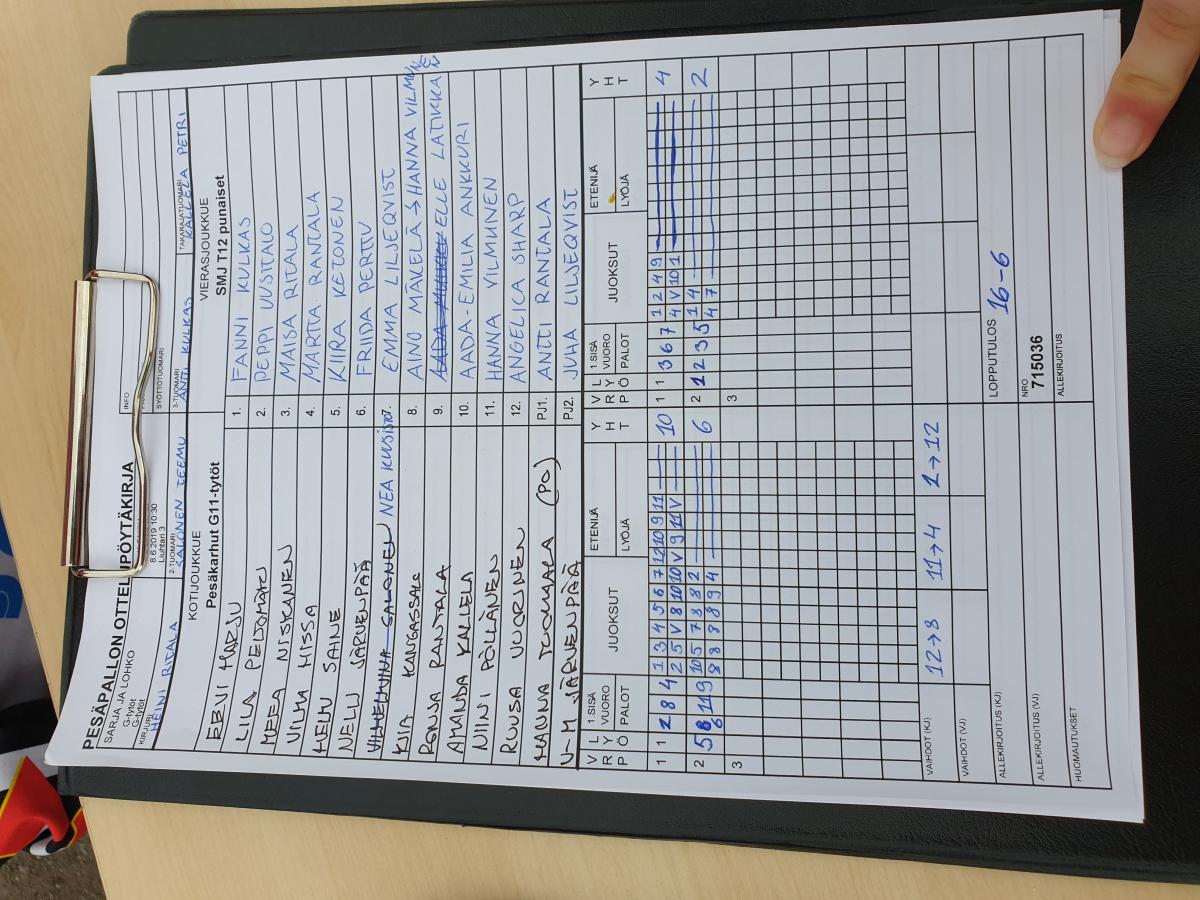 PESÄPALLON OTTELUPÖYTÄKIRJA
SARJA JA LOHKO
G-tytöt
G-tytöt
INFO
8.6.2019 10:30
Liuhtari 3
SYÖTTÖTUOMARI
KIRJURI
HEINI RITALA
2-TUOMARI
SALONEN TEEMU
3-TUOMARI
ANTTI KULKAS
TAKARAJATUOMARI
KALLELA PETRI
KOTIJOUKKUE
Pesäkarhut G11-tytöt
VIERASJOUKKUE
SMJ T12 punaiset
EEVI HARJU 1. FANNI KULKAS
LILA PELTOMAKI 2. PEPPI UUSITALO
MEEA NISKANEN 3. MAISA RITALA
VILMA HISSA 4. MARTTA RANTALA
HELMI SAINE 5. KIIRA KETONEN
NELLI JÄRVENPÄÄ 6. FRIIDA PERTTU
VILHELMIINA SALONEN NEA KUUSISTO 7. EMMA LILJEQVIST
KIIA KANGASSALO 8. AINO MÄKELÄ → HANNA VILMUNEN
RONJA RANTALA 9. ELLE LATIKKA
AMANDA KALLELA 10. AADA-EMILIA ANKKURI
NIINI PÖLLÄNEN 11. HANNA VILMUINEN
RUUSA VUORINEN 12. ANGELICA SHARP
HANNA TUOMALA (PO) PJ1. ANTTI RANTALA
U-M JÄRVENPÄÄ PJ2. JUHA LILJEQVIST
V L R Y P Ö 1.SISÄ VUORO PALOT JUOKSUT ETENIJÄ LYÖJÄ Y H T V L R Y P Ö 1.SISÄ VUORO PALOT JUOKSUT ETENIJÄ LYÖJÄ Y H T
1 2 8 4 1 3 4 5 6 7 12 10 9 11 10 1 3 6 7 1 2 4 9 4
2 5 V 8 10 10 V 9 11 V 4 V 10 1
2 5 8 11 9 10 5 7 8 8 2 6 2 1 2 3 5 1 4 2
8 8 8 8 9 4 4 7
3 3
VAIHDOT (KJ) 12→8 11→4 1→12
VAIHDOT (VJ)
ALLEKIRJOITUS (KJ)
LOPPUTULOS 16-6
ALLEKIRJOITUS (VJ)
NRO
715036
HUOMAUTUKSET
ALLEKIRJOITUS